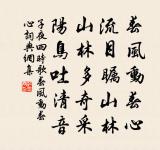 春風動春心
流目矚山林
山林多奇采
陽鳥吐清音
子夜四時歌春風動春
心詞典網集